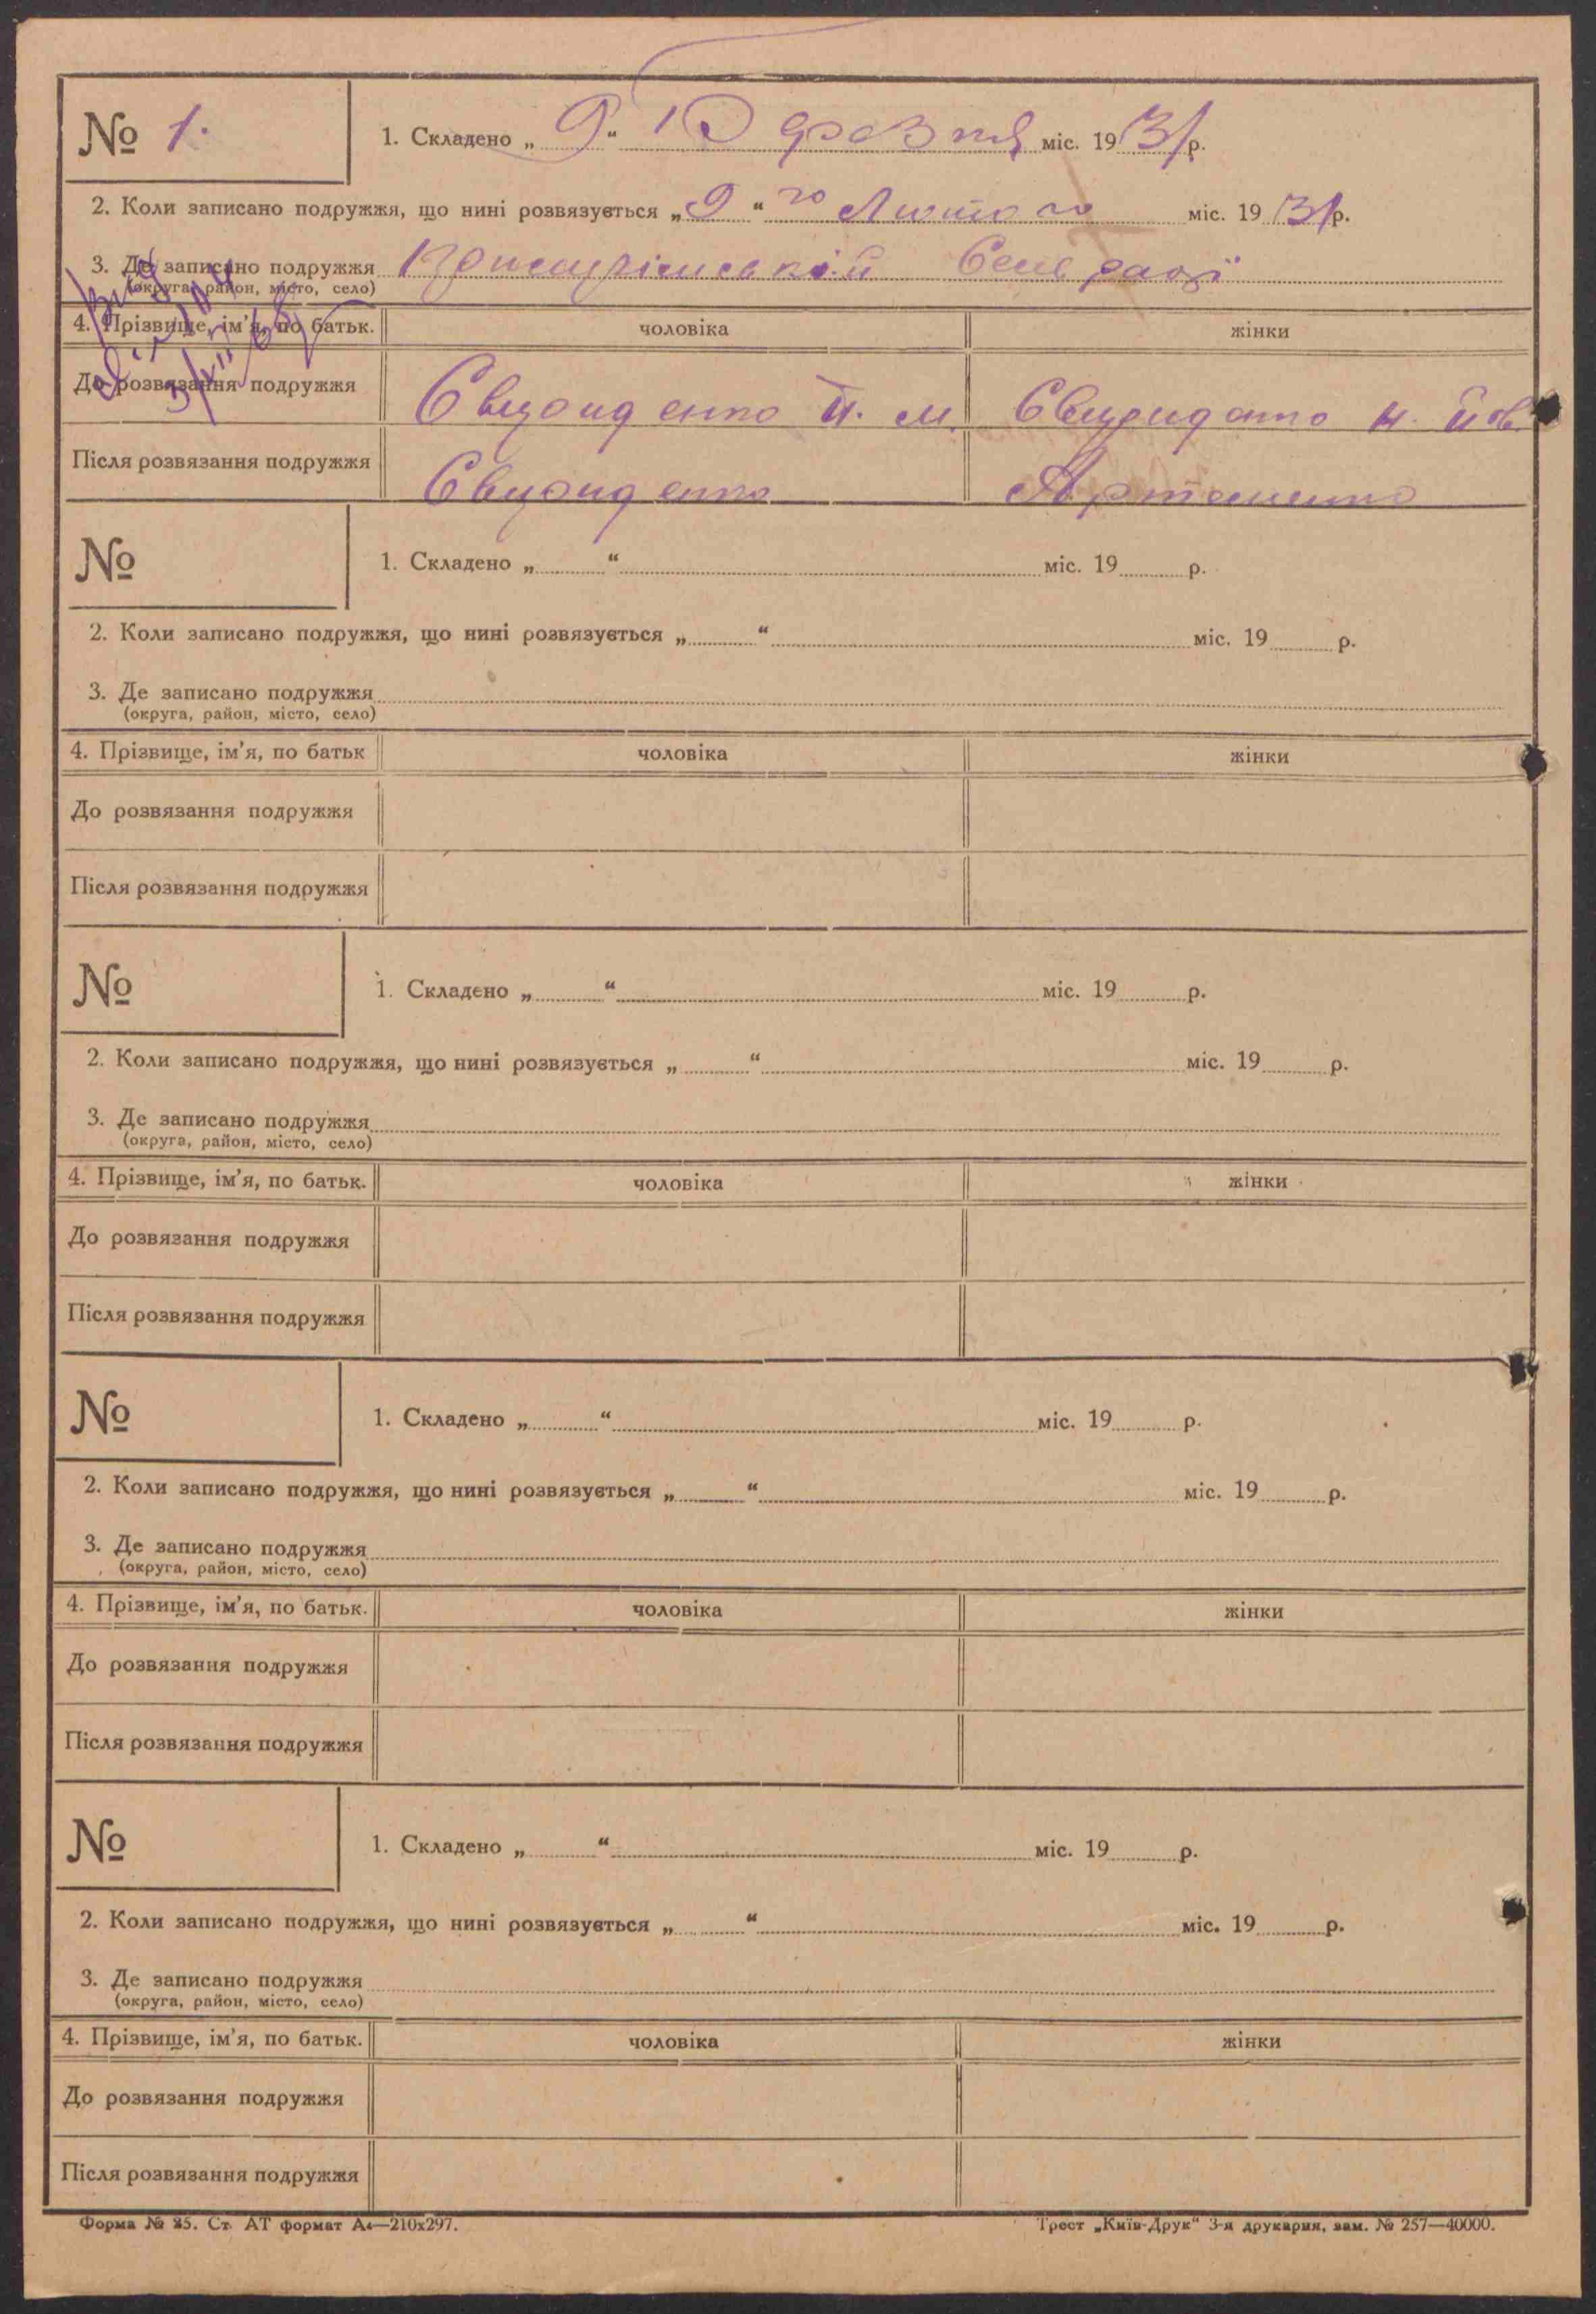 № 1.
1. Складено „ 9 “ 10 травня міс. 1931 р.
2. Коли записано подружжя, що нині розвязується „ 9 “ го Лютого міс. 1931 р.
3. Де записано подружжя Сель раді
(округа, район, місто, село)
4. Прізвище, ім’я, по батьк. чоловіка жінки
До розвязання подружжя Свириденко Й. М. Свириденко Н. Йов.
Після розвязання подружжя Свириденко Артеменко
№
1. Складено „ “ міс. 19 р.
2. Коли записано подружжя, що нині розвязується „ “ міс. 19 р.
3. Де записано подружжя
(округа, район, місто, село)
4. Прізвище, ім’я, по батьк чоловіка жінки
До розвязання подружжя
Після розвязання подружжя
№
1. Складено „ “ міс. 19 р.
2. Коли записано подружжя, що нині розвязується „ “ міс. 19 р.
3. Де записано подружжя
(округа, район, місто, село)
4. Прізвище, ім’я, по батьк. чоловіка жінки
До розвязання подружжя
Після розвязання подружжя
№
1. Складено „ “ міс. 19 р.
2. Коли записано подружжя, що нині розвязується „ “ міс. 19 р.
3. Де записано подружжя
(округа, район, місто, село)
4. Прізвище, ім’я, по батьк. чоловіка жінки
До розвязання подружжя
Після розвязання подружжя
№
1. Складено „ “ міс. 19 р.
2. Коли записано подружжя, що нині розвязується „ “ міс. 19 р.
3. Де записано подружжя
(округа, район, місто, село)
4. Прізвище, ім’я, по батьк. чоловіка жінки
До розвязання подружжя
Після розвязання подружжя
Форма № 25. Ст. АТ формат А4—210x297. Трест „Київ-Друк“ 3-я друкарня, зам. № 257—40000.